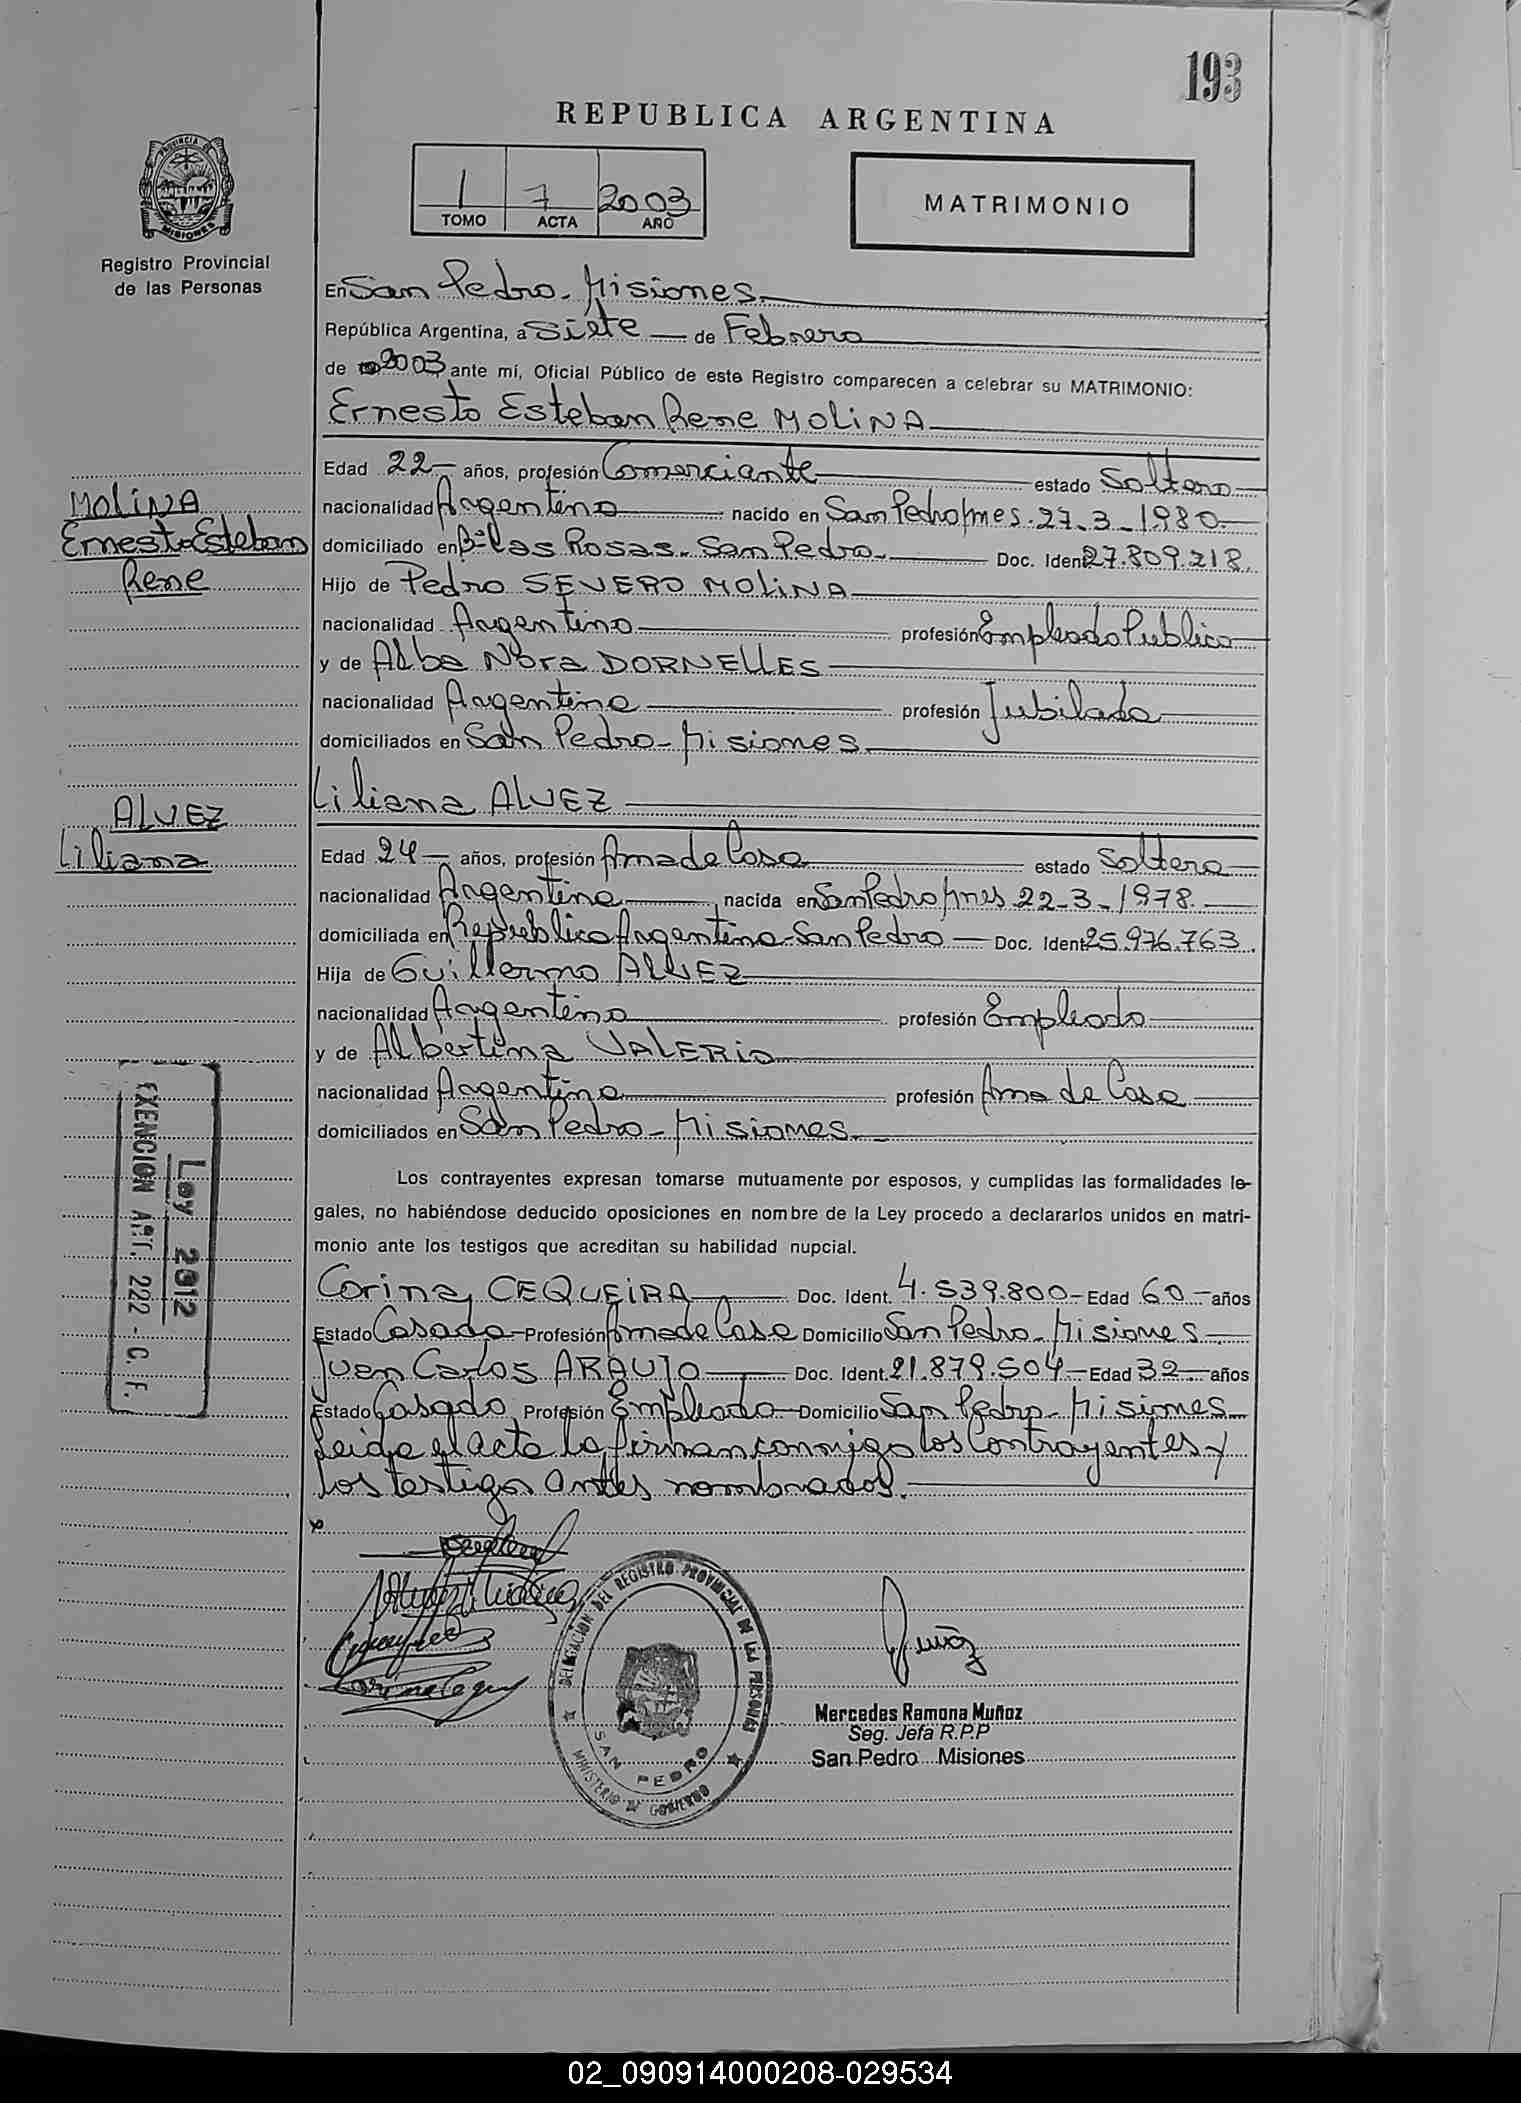 193
REPUBLICA ARGENTINA
PROVINCIA DE MISIONES
Registro Provincial
de las Personas
1 7 2003
TOMO ACTA AÑO
MATRIMONIO
En San Pedro - Misiones
República Argentina, a siete de Febrero
de 2003 ante mí, Oficial Público de este Registro comparecen a celebrar su MATRIMONIO:
Ernesto Esteban Rene MOLINA
MOLINA
Ernesto Esteban
Rene
Edad 22 años, profesión Comerciante estado Soltero
nacionalidad Argentino nacido en San Pedro Mnes. 27-3-1980
domiciliado en Bº Las Rosas - San Pedro - Doc. Ident. 27.809.218
Hijo de Pedro SEVERO MOLINA
nacionalidad Argentino profesión Empleado Publico
y de Alba Nora DORNELLES
nacionalidad Argentina profesión Jubilada
domiciliados en San Pedro - Misiones
ALVEZ
Liliana
Liliana ALVEZ
Edad 24 años, profesión Ama de Casa estado Soltera
nacionalidad Argentina nacida en San Pedro Mnes 22-3-1978
domiciliada en Republica Argentina - San Pedro - Doc. Ident. 25.976.763
Hija de Guillermo ALVEZ
nacionalidad Argentino profesión Empleado
y de Albertina VALERIO
nacionalidad Argentina profesión Ama de Casa
domiciliados en San Pedro - Misiones
Ley 2812
EXENCION ART. 222 - C. F.
Los contrayentes expresan tomarse mutuamente por esposos, y cumplidas las formalidades le-
gales, no habiéndose deducido oposiciones en nombre de la Ley procedo a declararlos unidos en matri-
monio ante los testigos que acreditan su habilidad nupcial.
Corina CEQUEIRA Doc. Ident. 4.539.800 - Edad 60 - años
Estado Casada - Profesión Ama de Casa Domicilio San Pedro - Misiones
Juan Carlos ARAUJO Doc. Ident. 21.879.504 - Edad 32 - años
Estado Casado Profesión Empleado - Domicilio San Pedro - Misiones
Leida el acta la firman conmigo los Contrayentes y
los testigos antes nombrados.
DELEGACION DEL REGISTRO PROVINCIAL DE LAS PERSONAS
SAN PEDRO
MINISTERIO DE GOBIERNO
Muñoz
Mercedes Ramona Muñoz
Seg. Jefa R.P.P
San Pedro Misiones
02_090914000208-029534